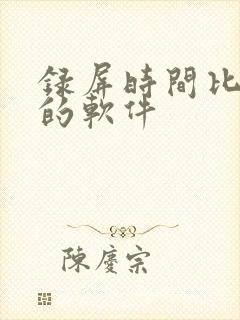 録屏時間比
的軟件
陳慶宗